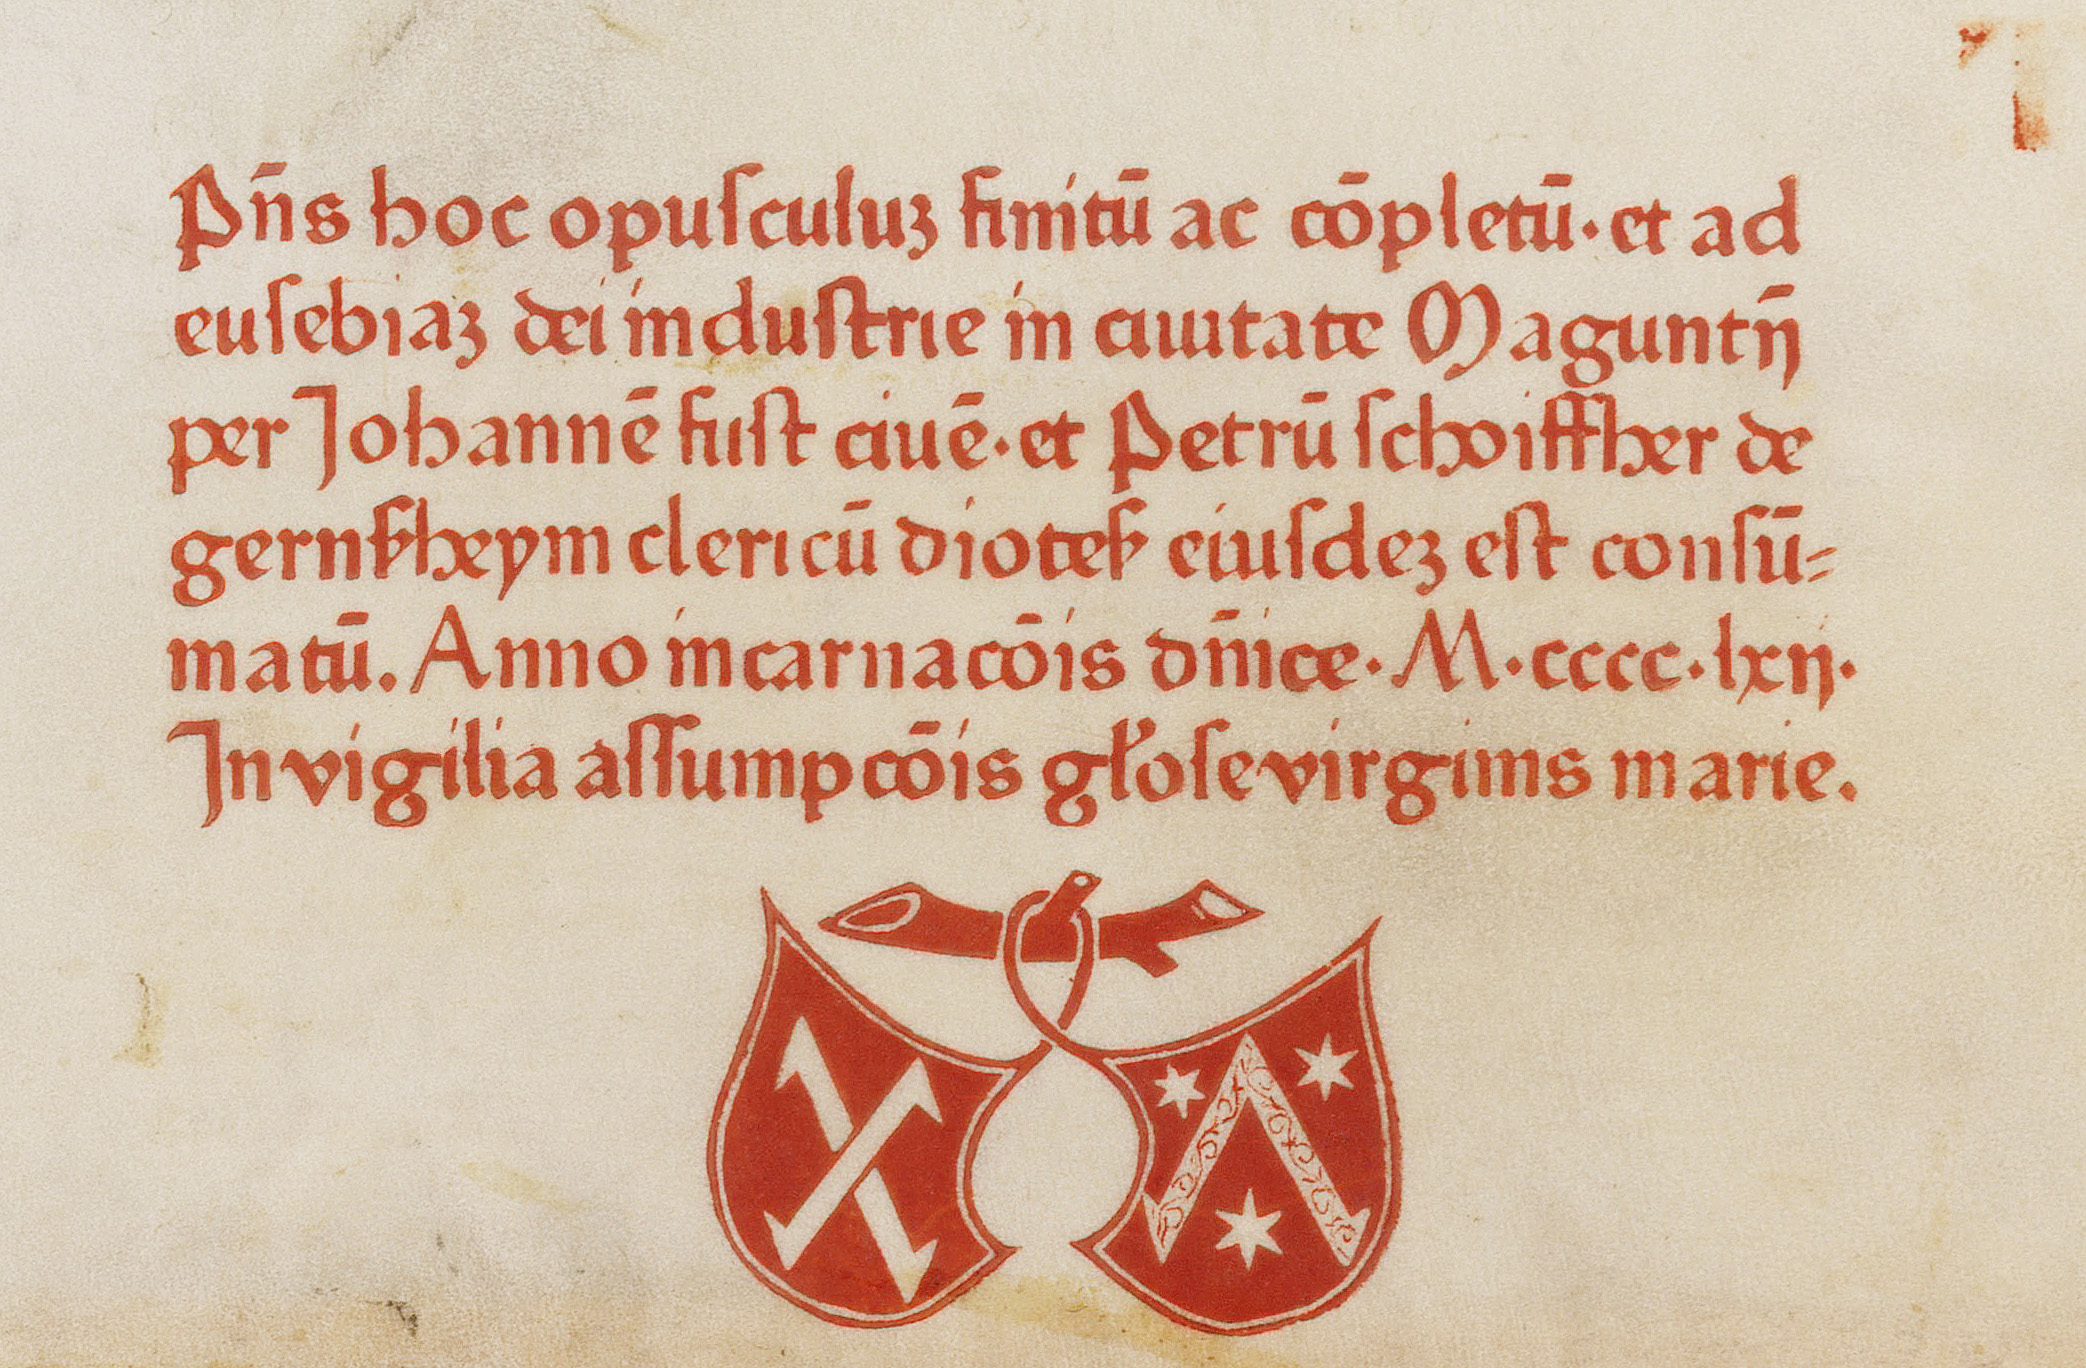 Pn̄s hoc opuſculuꝫ finitū ac cōpletū· et ad
euſebiaꝫ dei induſtrie in ciuitate Maguntij̄
per Johannē fuſt ciuē· et Petrū ſchoiffher de
gernſzheym clericū diotesꝭ eiuſdeꝫ eſt conſū⸗
matū. Anno incarnacōis dn̄ice· M·cccc·lxij·
In vigilia aſſumpcōis gl̓oſe virginis marie.